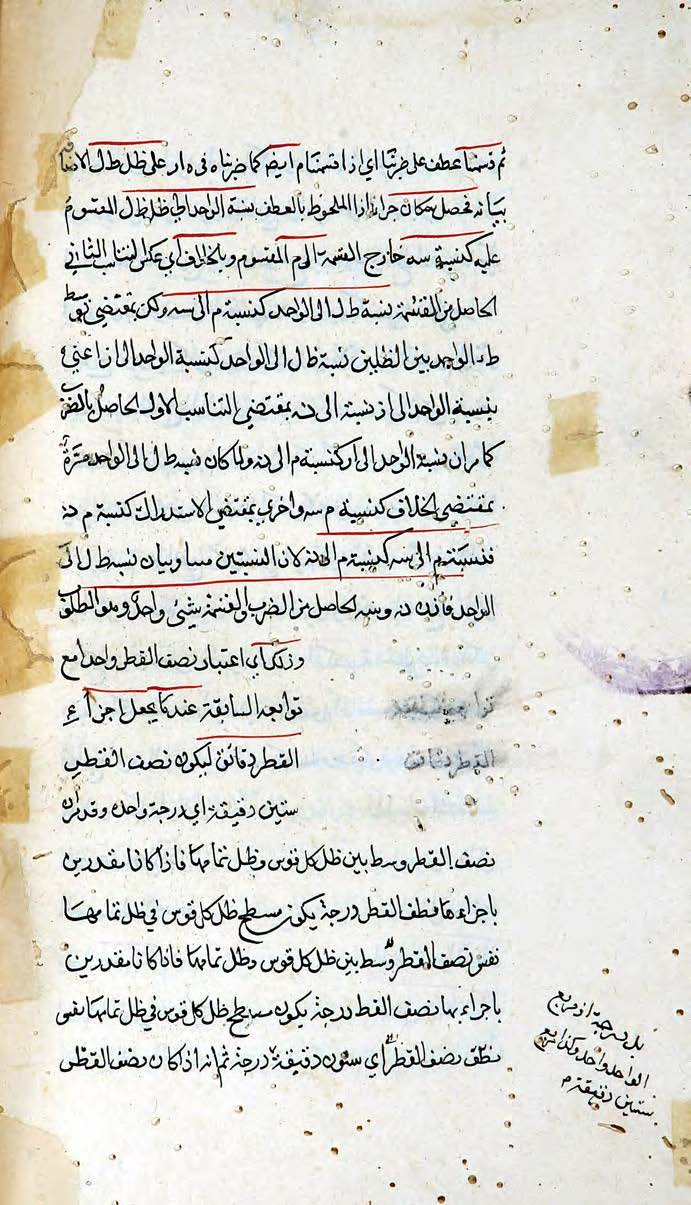 ثم قسمنا عطف على ضربنا اي اذا قسمنا م ايضا كما ضربناه في ه ار على ظل ط ل
بيانه فحصل مكان جزاء اذا الملحوظ بالعطف نسبة الواحد الى ظ ل المقسوم
عليه كنسبة سه خارج القسمة الى م المقسوم وبالخلاف اي عكس التناسب الثاني
الحاصل من القسمة نسبة ط ل الى الواحد كنسبة م الى سه ولكن بمقتضى توسط
الواحد بين الظلين نسبة ظ ل الى الواحد كنسبة الواحد الى ا ز اعني
بنسبة الواحد الى ا ز نسبة الى نه بمقتضى التناسب الاول الحاصل بالضرب
كما مر ان نسبة الواحد الى ار كنسبة م الى نه ولما كان نسبة ط ل الى الواحد مرة
بمقتضى الخلاف كنسبة م سه واخرى بمقتضى الاستدراك كنسبة م نه
فنسبة م الى سه كنسبة م الى نه لان النسبتين مساويتان نسبة ط ل الى
الواحد فاذن نه وسه الحاصل من الضرب والقسمة شيئ واحد وهو المطلوب
وذلك اي اعتبار نصف القطر واحدا مع
توابعه السابقة عندما يجعل اجزاء
القطر دقائق ليكون نصف القطر
ستين دقيقة اي درجة واحدة وقد مر ان
نصف القطر وسط بين ظل كل قوس وظل تمامها فاذا كانا مقدرين
باجزاء بها نصف القطر درجة يكون مسطح ظل كل قوس في ظل تمامها
نفس نصف القطر وسط بين ظل كل قوس وظل تمامها فاذا كانا مقدرين
باجزاء بها نصف القطر درجة يكون مسطح ظل كل قوس في ظل تمامها نفس
نصف القطر اي ستون دقيقة درجة ثم انه اذا كان نصف القطر
بل درجة اذ مربع
الواحد واحد وكذا مربع
ستين دقيقة م